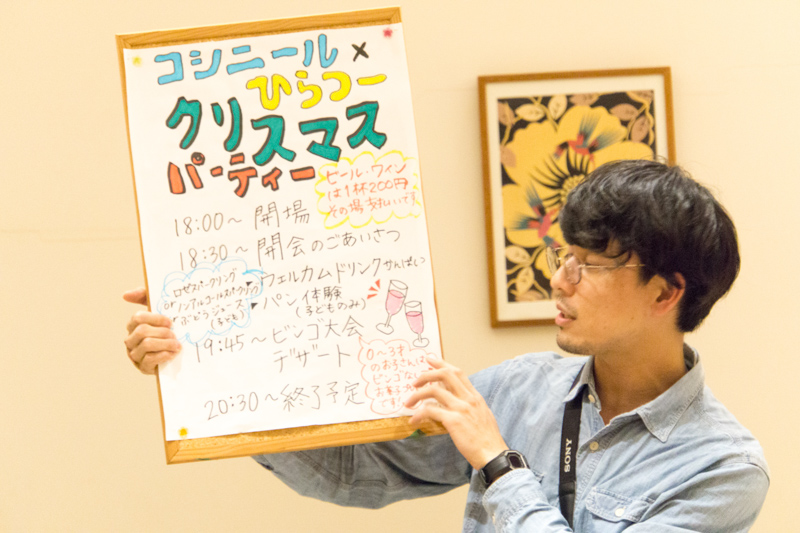 コシニール×
ひらつー
クリスマス
パーティー
ビール・ワイン
は1杯200円
その場支払いです
18:00～ 開場
18:30～ 開会のごあいさつ
ウェルカムドリンク かんぱい
ロゼスパークリング
or ノンアルコールスパークリング
ぶどうジュース
(子ども)
パン体験
(子どものみ)
19:45～ ビンゴ大会
デザート
0～3才
のお子さんは
ビンゴなし
お菓子
です
20:30～ 終了予定
SONY